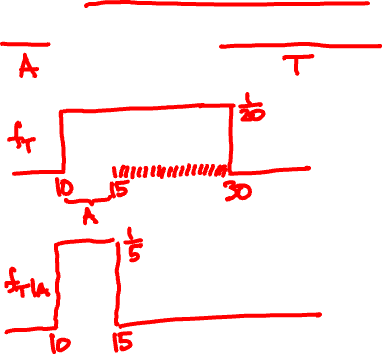 A T
f_T 1/20
10 15 30
A
f_T|A 1/5
10 15